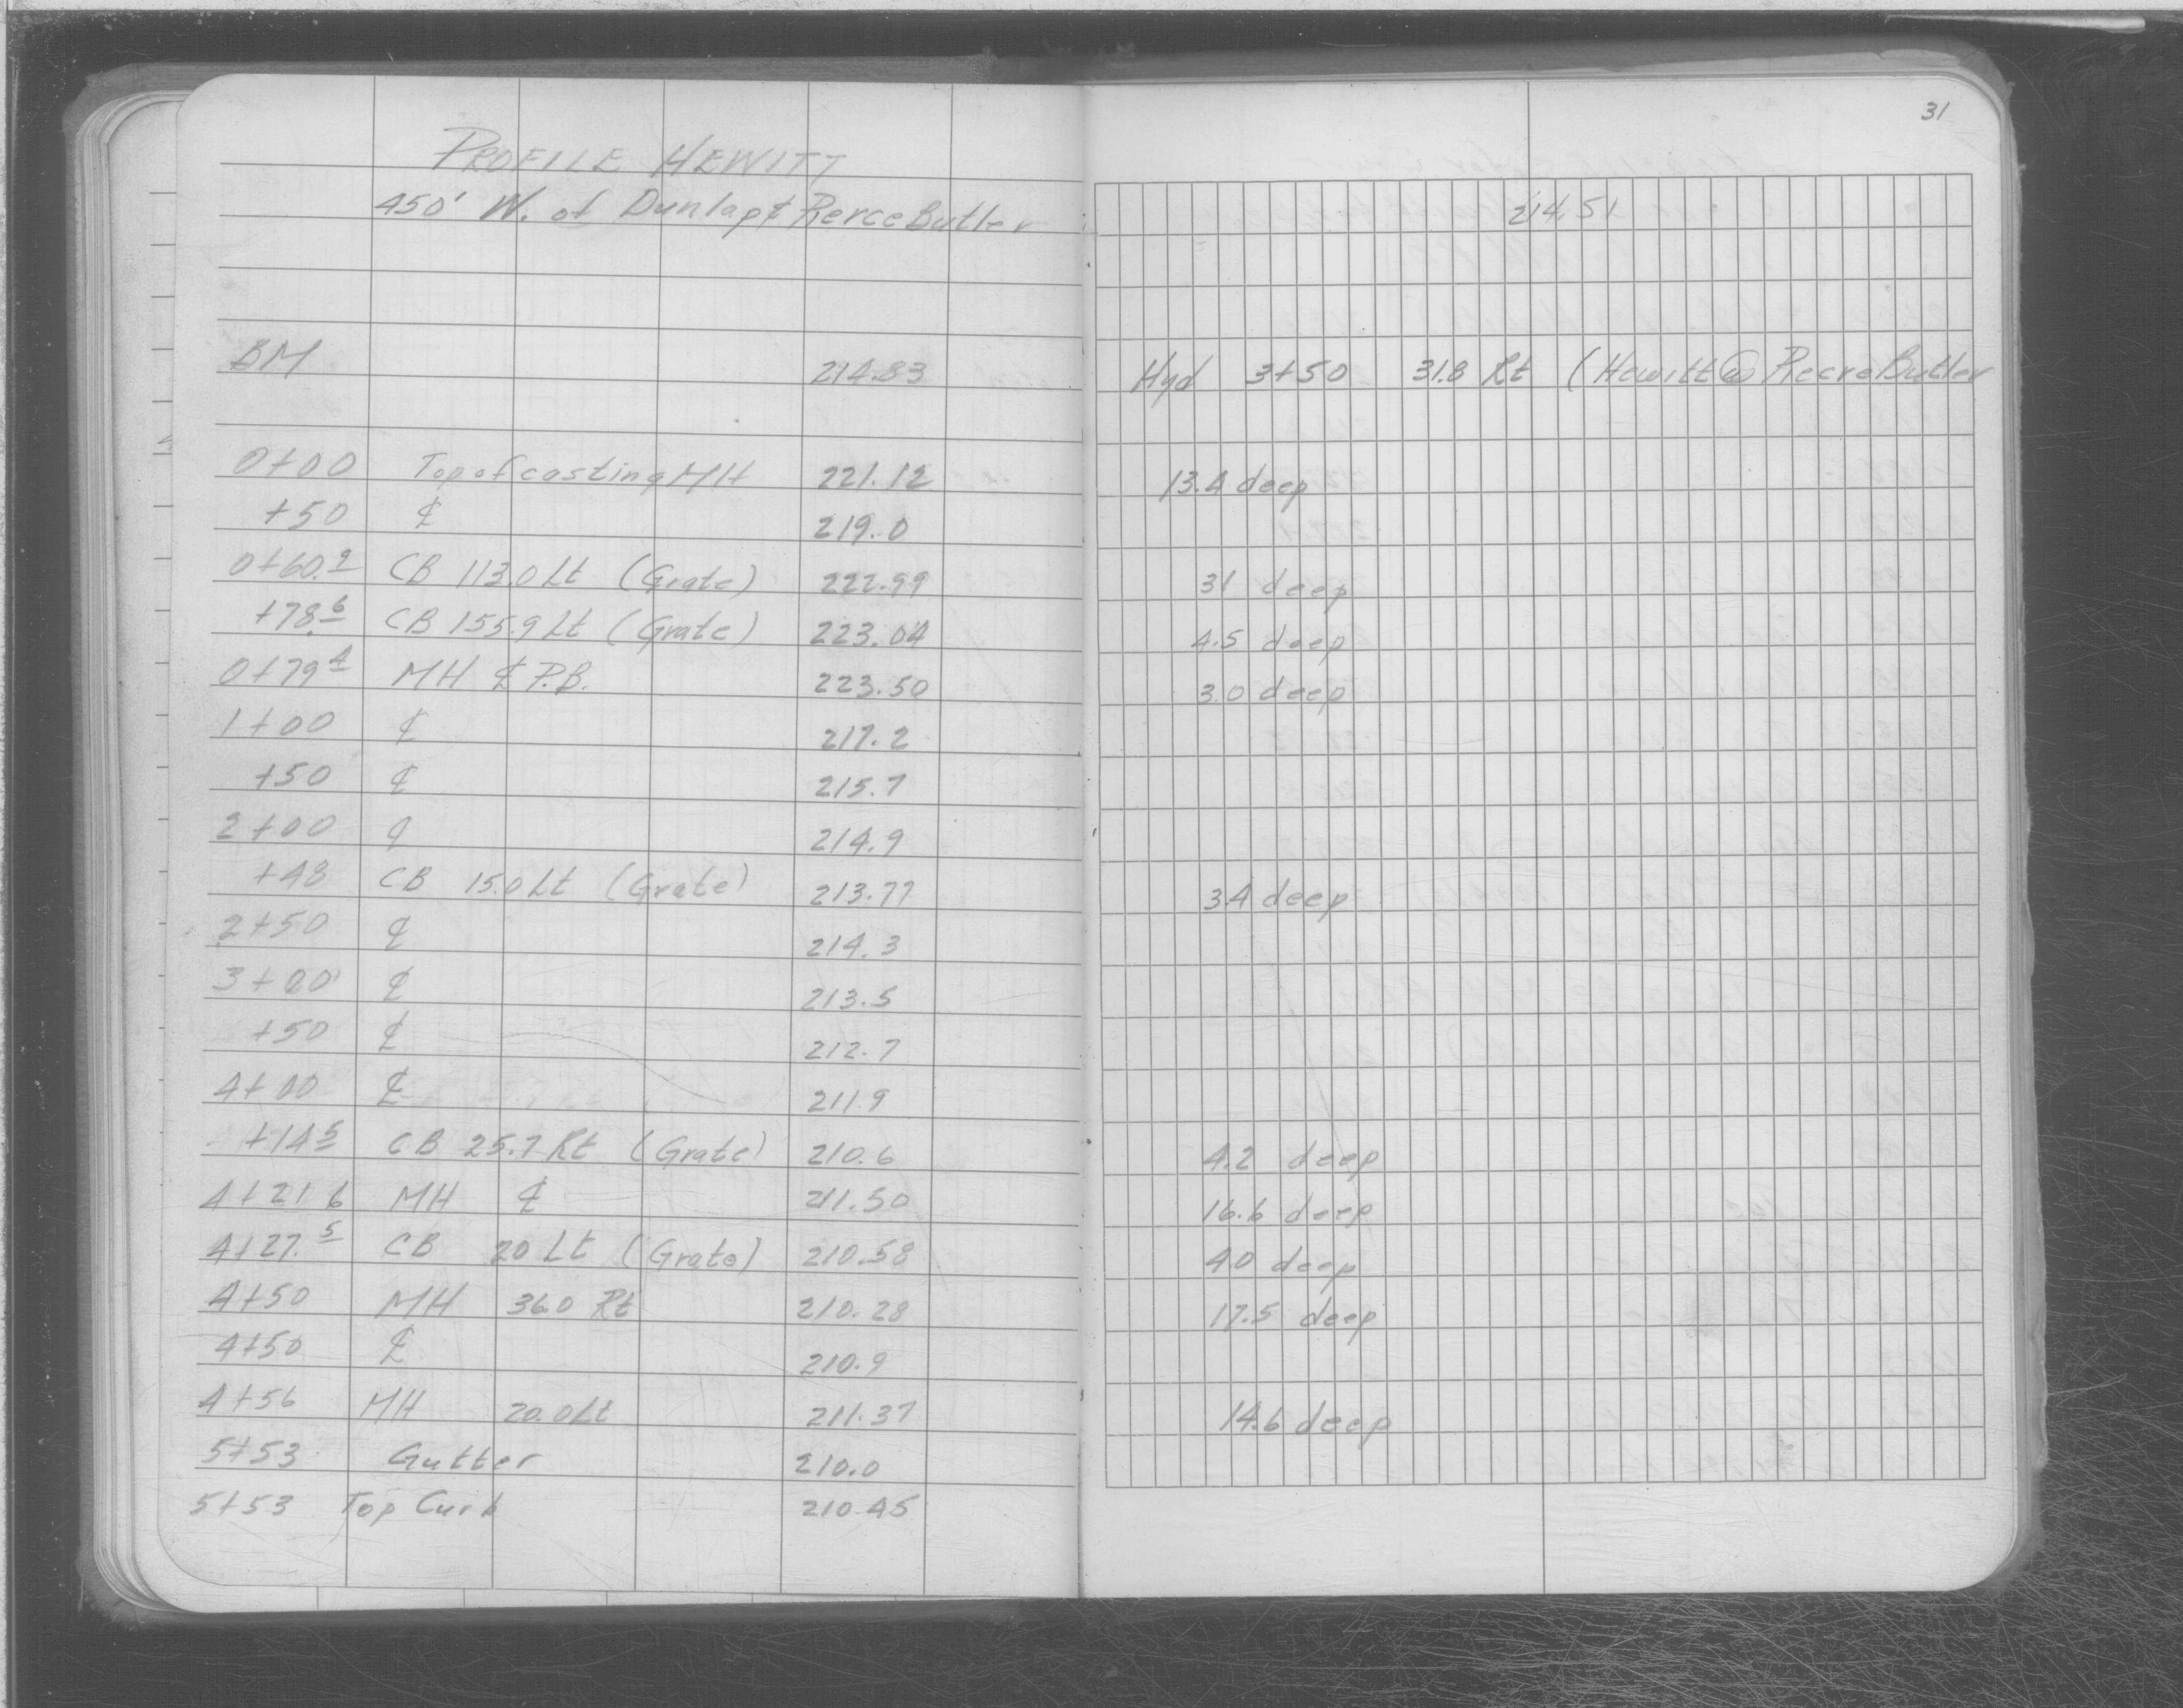 31
PROFILE HEWITT
450' W. of Dunlap & Pierce Butler 214.51
BM 214.83 Hyd 3+50 31.8 Rt (Hewitt @ Pierce Butler
0+00 Top of casting MH 221.12 13.4 deep
+50 ℄ 219.0
0+60.9 CB 113.0 Lt (Grate) 222.99 31 deep
+78.6 CB 155.9 Lt (Grate) 223.04 4.5 deep
0+79 4 MH ℄ P.B. 223.50 3.0 deep
1+00 ℄ 217.2
+50 ℄ 215.7
2+00 ℄ 214.9
+48 CB 15.0 Lt (Grate) 213.77 3.4 deep
2+50 ℄ 214.3
3+00 ℄ 213.5
+50 ℄ 212.7
4+00 ℄ 211.9
+14 5 CB 25.7 Rt (Grate) 210.6 4.2 deep
4+21 6 MH ℄ 211.50 16.6 deep
4+27.5 CB 20 Lt (Grate) 210.58 4.0 deep
4+50 MH 36.0 Rt 210.28 17.5 deep
4+50 ℄ 210.9
4+56 MH 20.0 Lt 211.37 14.6 deep
5+53 Gutter 210.0
5+53 Top Curb 210.45